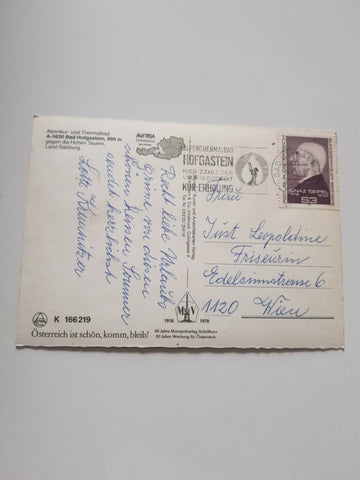 Alpenkur- und Thermalbad
A-5630 Bad Hofgastein, 869 m
gegen die Hohen Tauern,
Land Salzburg.
AUSTRIA
Recht liebe Urlaubs
grüße von diesem
schönen heissen Sommer
sendet herzlichst
Lotte
K 166219
Österreich ist schön, komm, bleib!
ALPENTHERMALBAD
HOFGASTEIN
HIER ZÄHLT DER
KUR-ERHOLUNG
IGNAZ SEIPEL
S3
Frau
Just Leopoldine
Friseurin
Edelsinnstrasse 6
1120 Wien
M V
1918 1978
60 Jahre Manzpostverlag Schilthorn
60 Jahre Werbung für Österreich